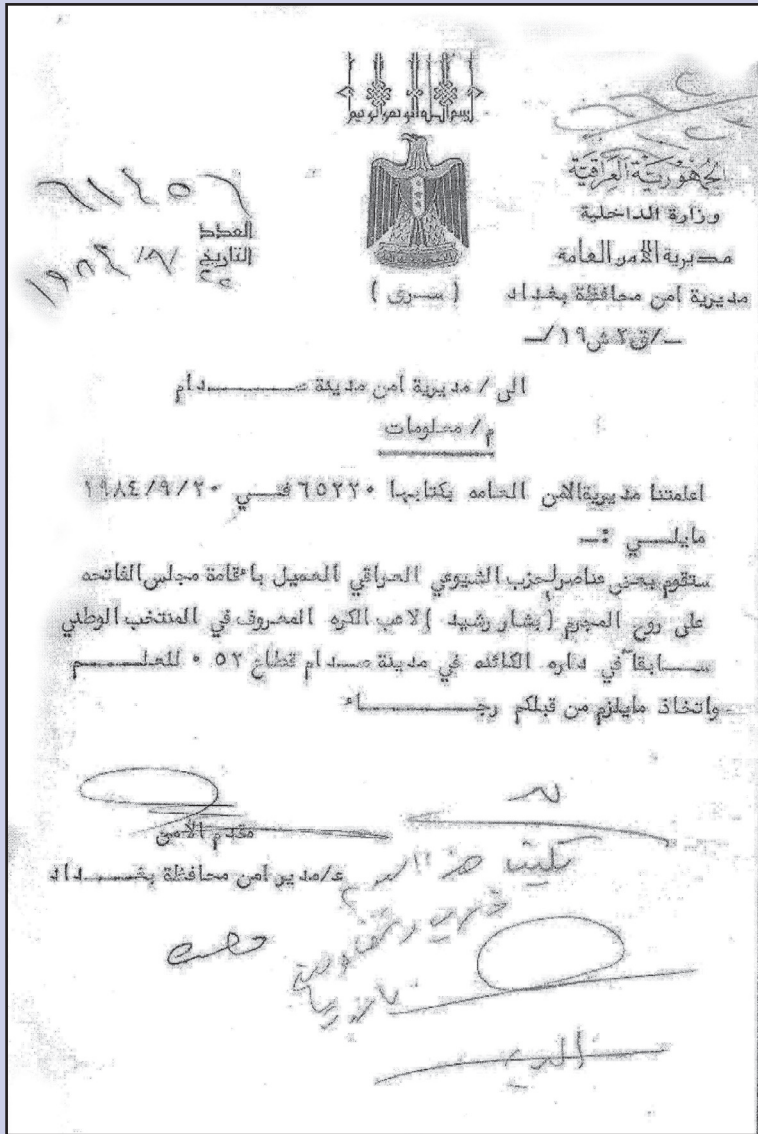 بسم الله الرحمن الرحيم
الجمهورية العراقية
وزارة الداخلية
مديرية الامن العامة
مديرية امن محافظة بغداد
ـ/ق٢ ش١٩/ـ
( سـرى )
العدد ٦١٤٥٦
التاريخ / ٩/ ١٩٨٤
٢٢
الى / مديرية امن مدينة صـــــدام
م/ معلومات
اعلمتنا مديريةالامن العامه بكتابها ٦٥٢٢٠ فـي ١٩٨٤/٩/٢٠
مايلـــي :ـ
ستقوم بعض عناصرلحزب الشيوعي العراقي العميل باقامة مجلس الفاتحه
على روح المجرم (بشار رشيد )لاعب الكره المعروف في المنتخب الوطني
ســـابقاً في داره الكائنه في مدينة صـدام قطاع ٥٢ ٠ للعلـــــم
واتخاذ مايلزم من قبلكم رجـــــــاء
مقدم الامن
ع/مدير امن محافظة بغـــداد